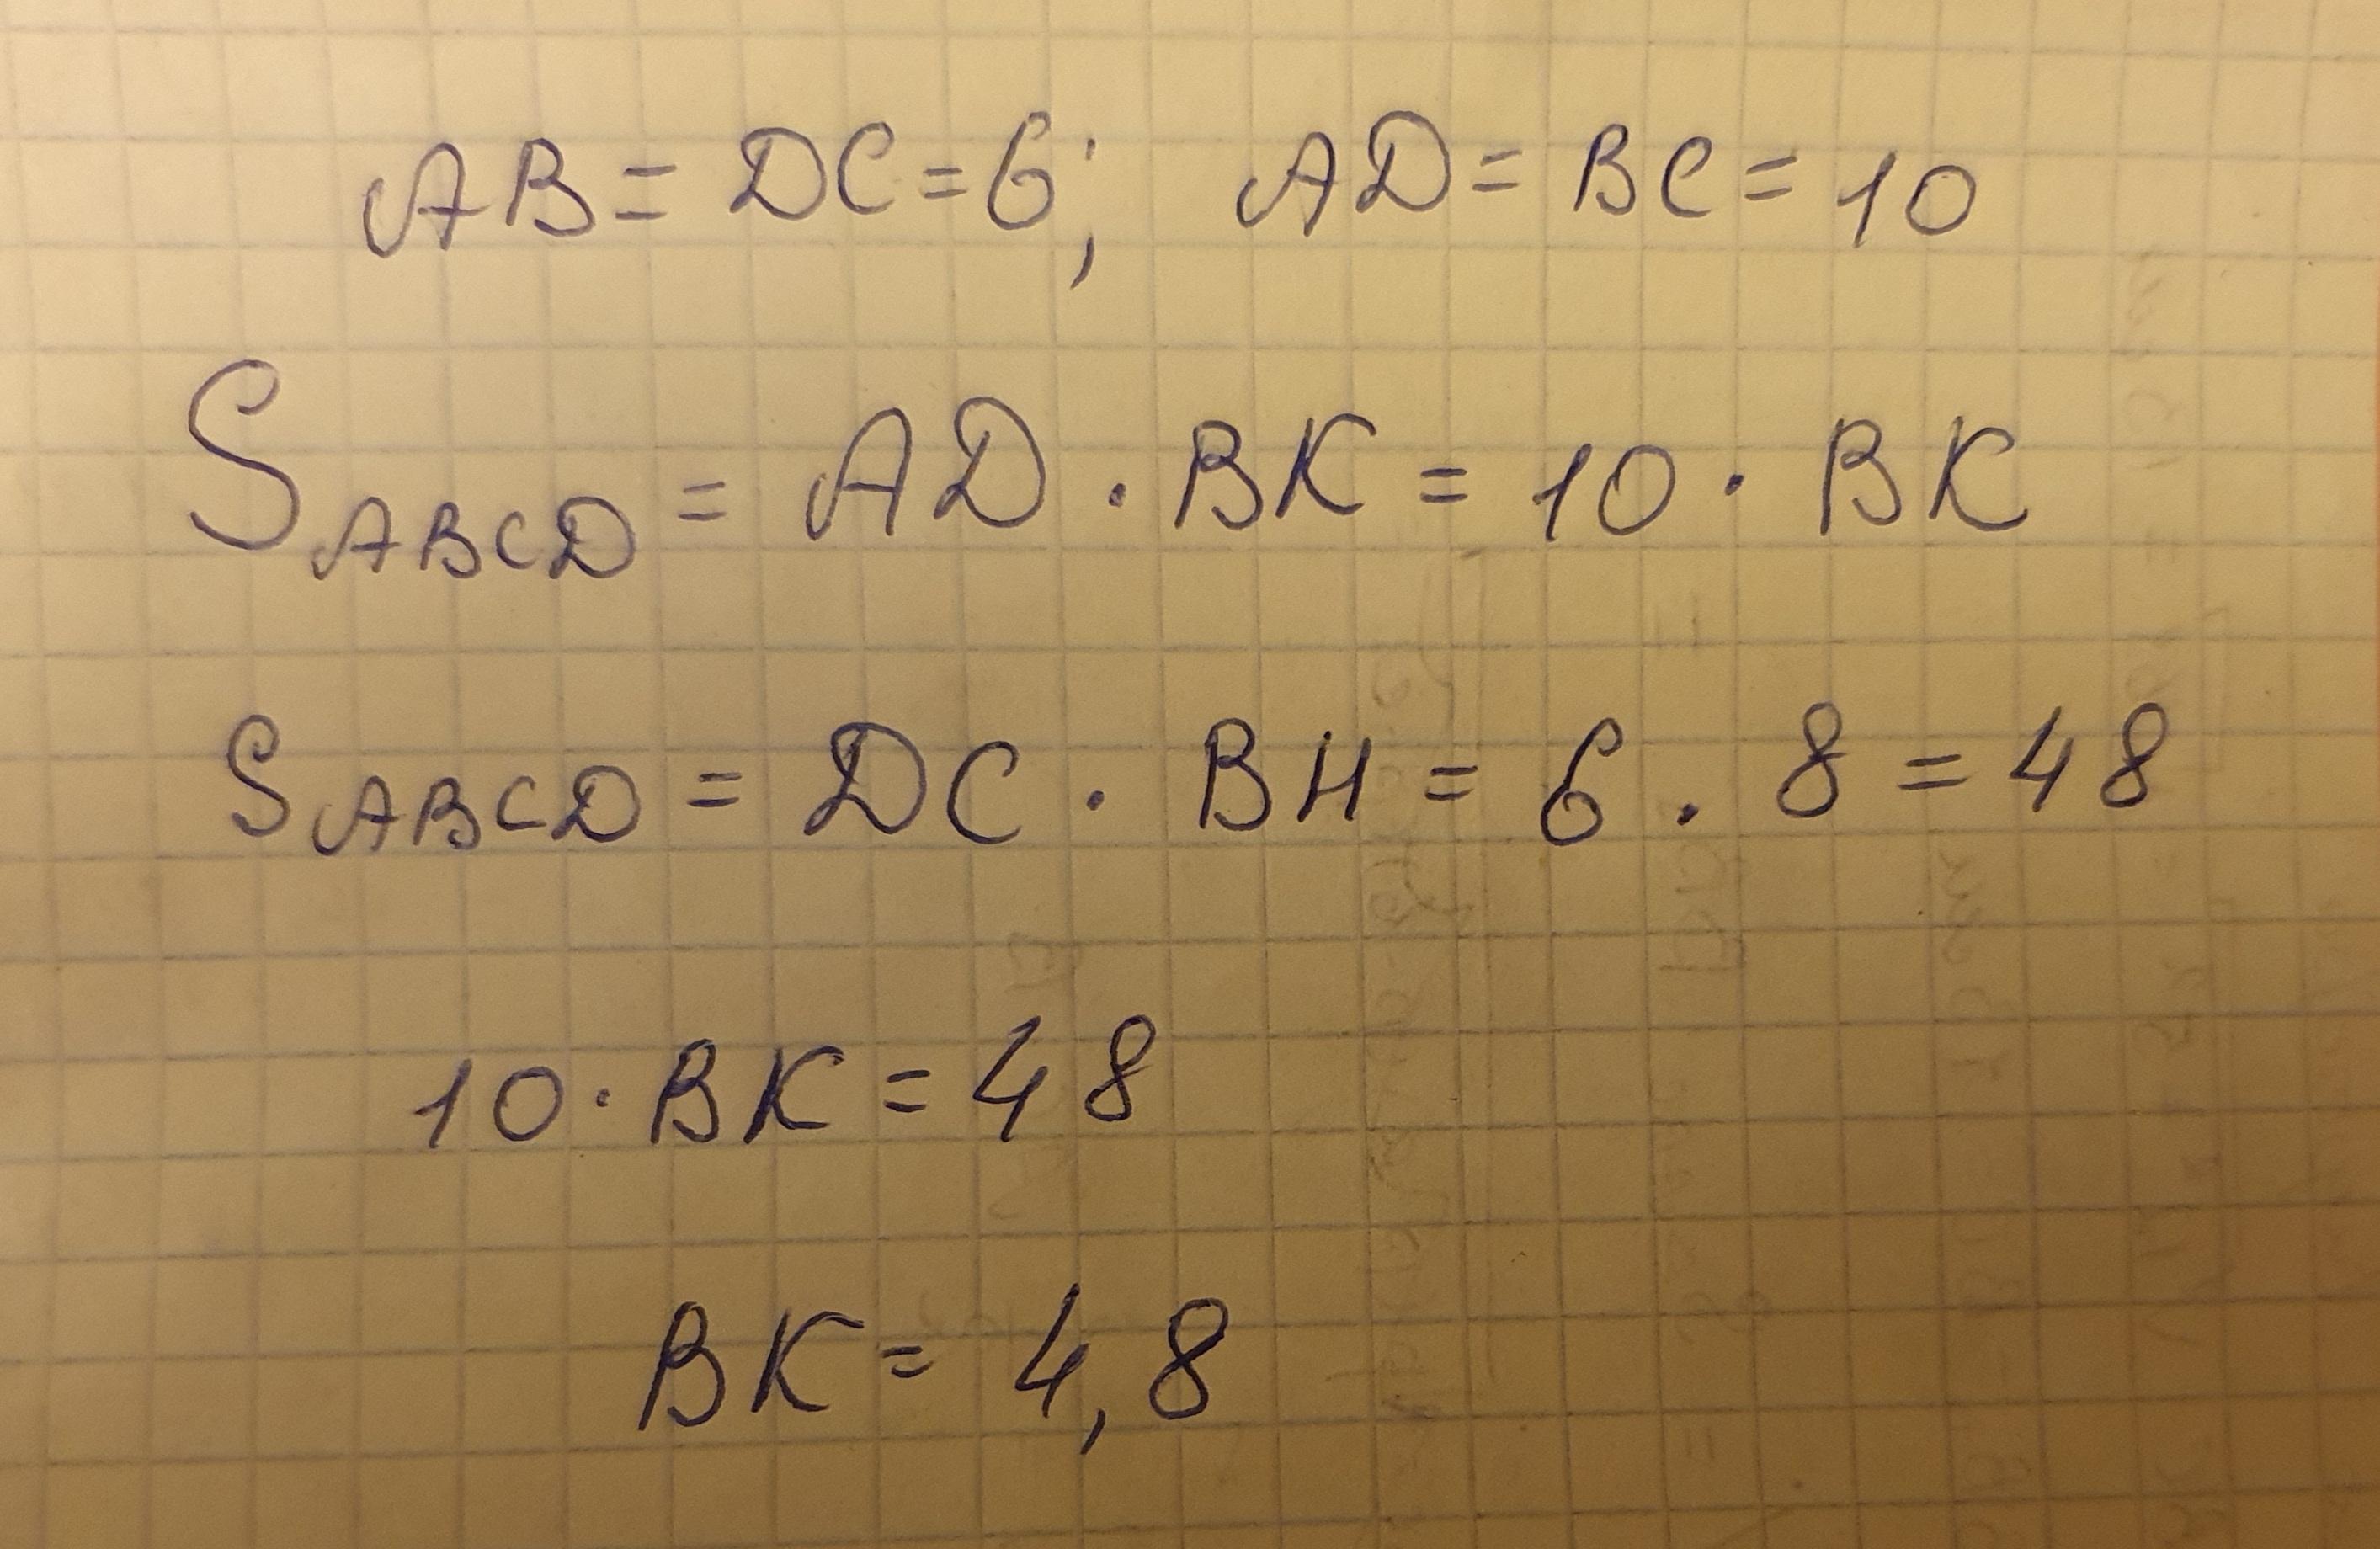 AB = DC = 6; AD = BC = 10
S_ABCD = AD · BK = 10 · BK
S_ABCD = DC · BH = 6 · 8 = 48
10 · BK = 48
BK = 4,8